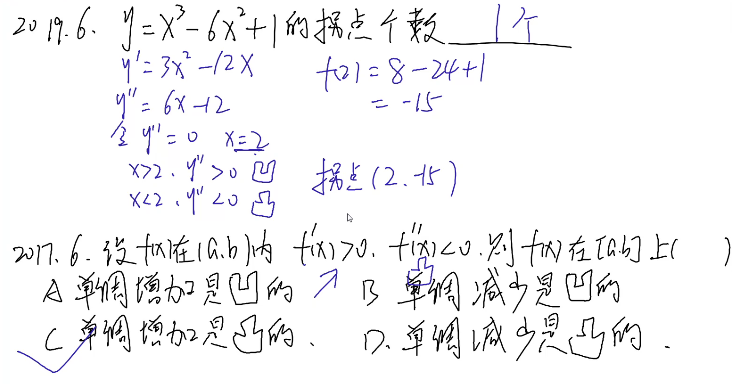 2019.6. y=x³-6x²+1的拐点个数 1个
y'=3x²-12x f(2)=8-24+1
y''=6x-12 =-15
令 y''=0 x=2
x>2. y''>0 凹
x<2. y''<0 凸 拐点(2.-15)
2017.6. 设f(x)在(a.b)内 f'(x)>0. f''(x)<0. 则 f(x) 在[a.b]上( )
凸
A 单调增加是凹的 ↗ B 单调减少是凹的
C 单调增加是凸的. D. 单调减少是凸的.